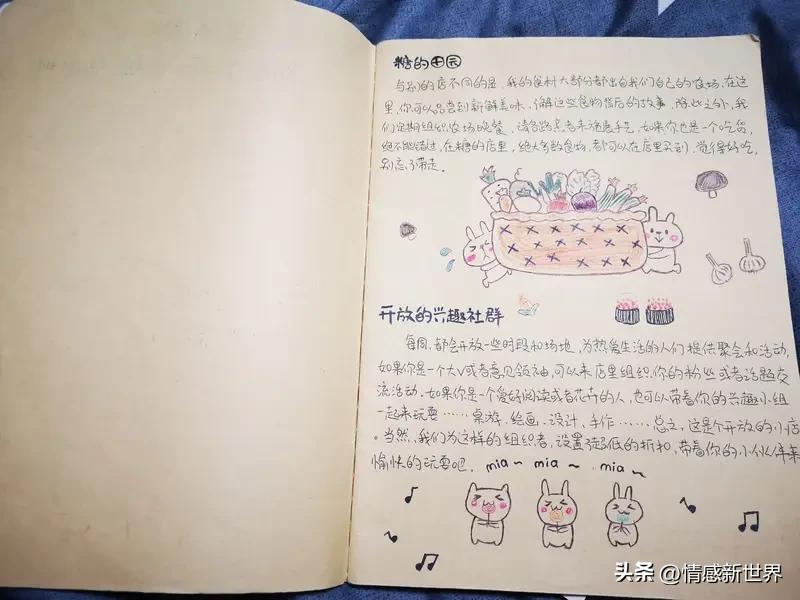 糖的田园
与别的店不同的是，我的食材大部分都出自我们自己的农场，在这
里，你可以品尝到新鲜美味，了解这些食物背后的故事，除此之外，我
们定期组织农场晚餐，请各路患者来施展手艺，如果你也是一个吃货，
绝不能错过，在糖的店里，绝大多数食物，都可以在店里买到，觉得好吃，
别忘了带走。
开放的兴趣社群
每周，都会开放一些时段和场地，为热爱生活的人们提供聚会和活动，
如果你是一个大V或者意见领袖，可以来店里组织你的粉丝或者话题交
流活动。如果你是一个爱好阅读或者花卉的人，也可以带着你的兴趣小组
一起来玩耍……桌游、绘画、设计、手作……总之，这是个开放的小店
。当然，我们为这样的组织者，设置了超低的折扣，带着你的小伙伴来
愉快的玩耍吧。mia~ mia~ mia~
头条 @情感新世界